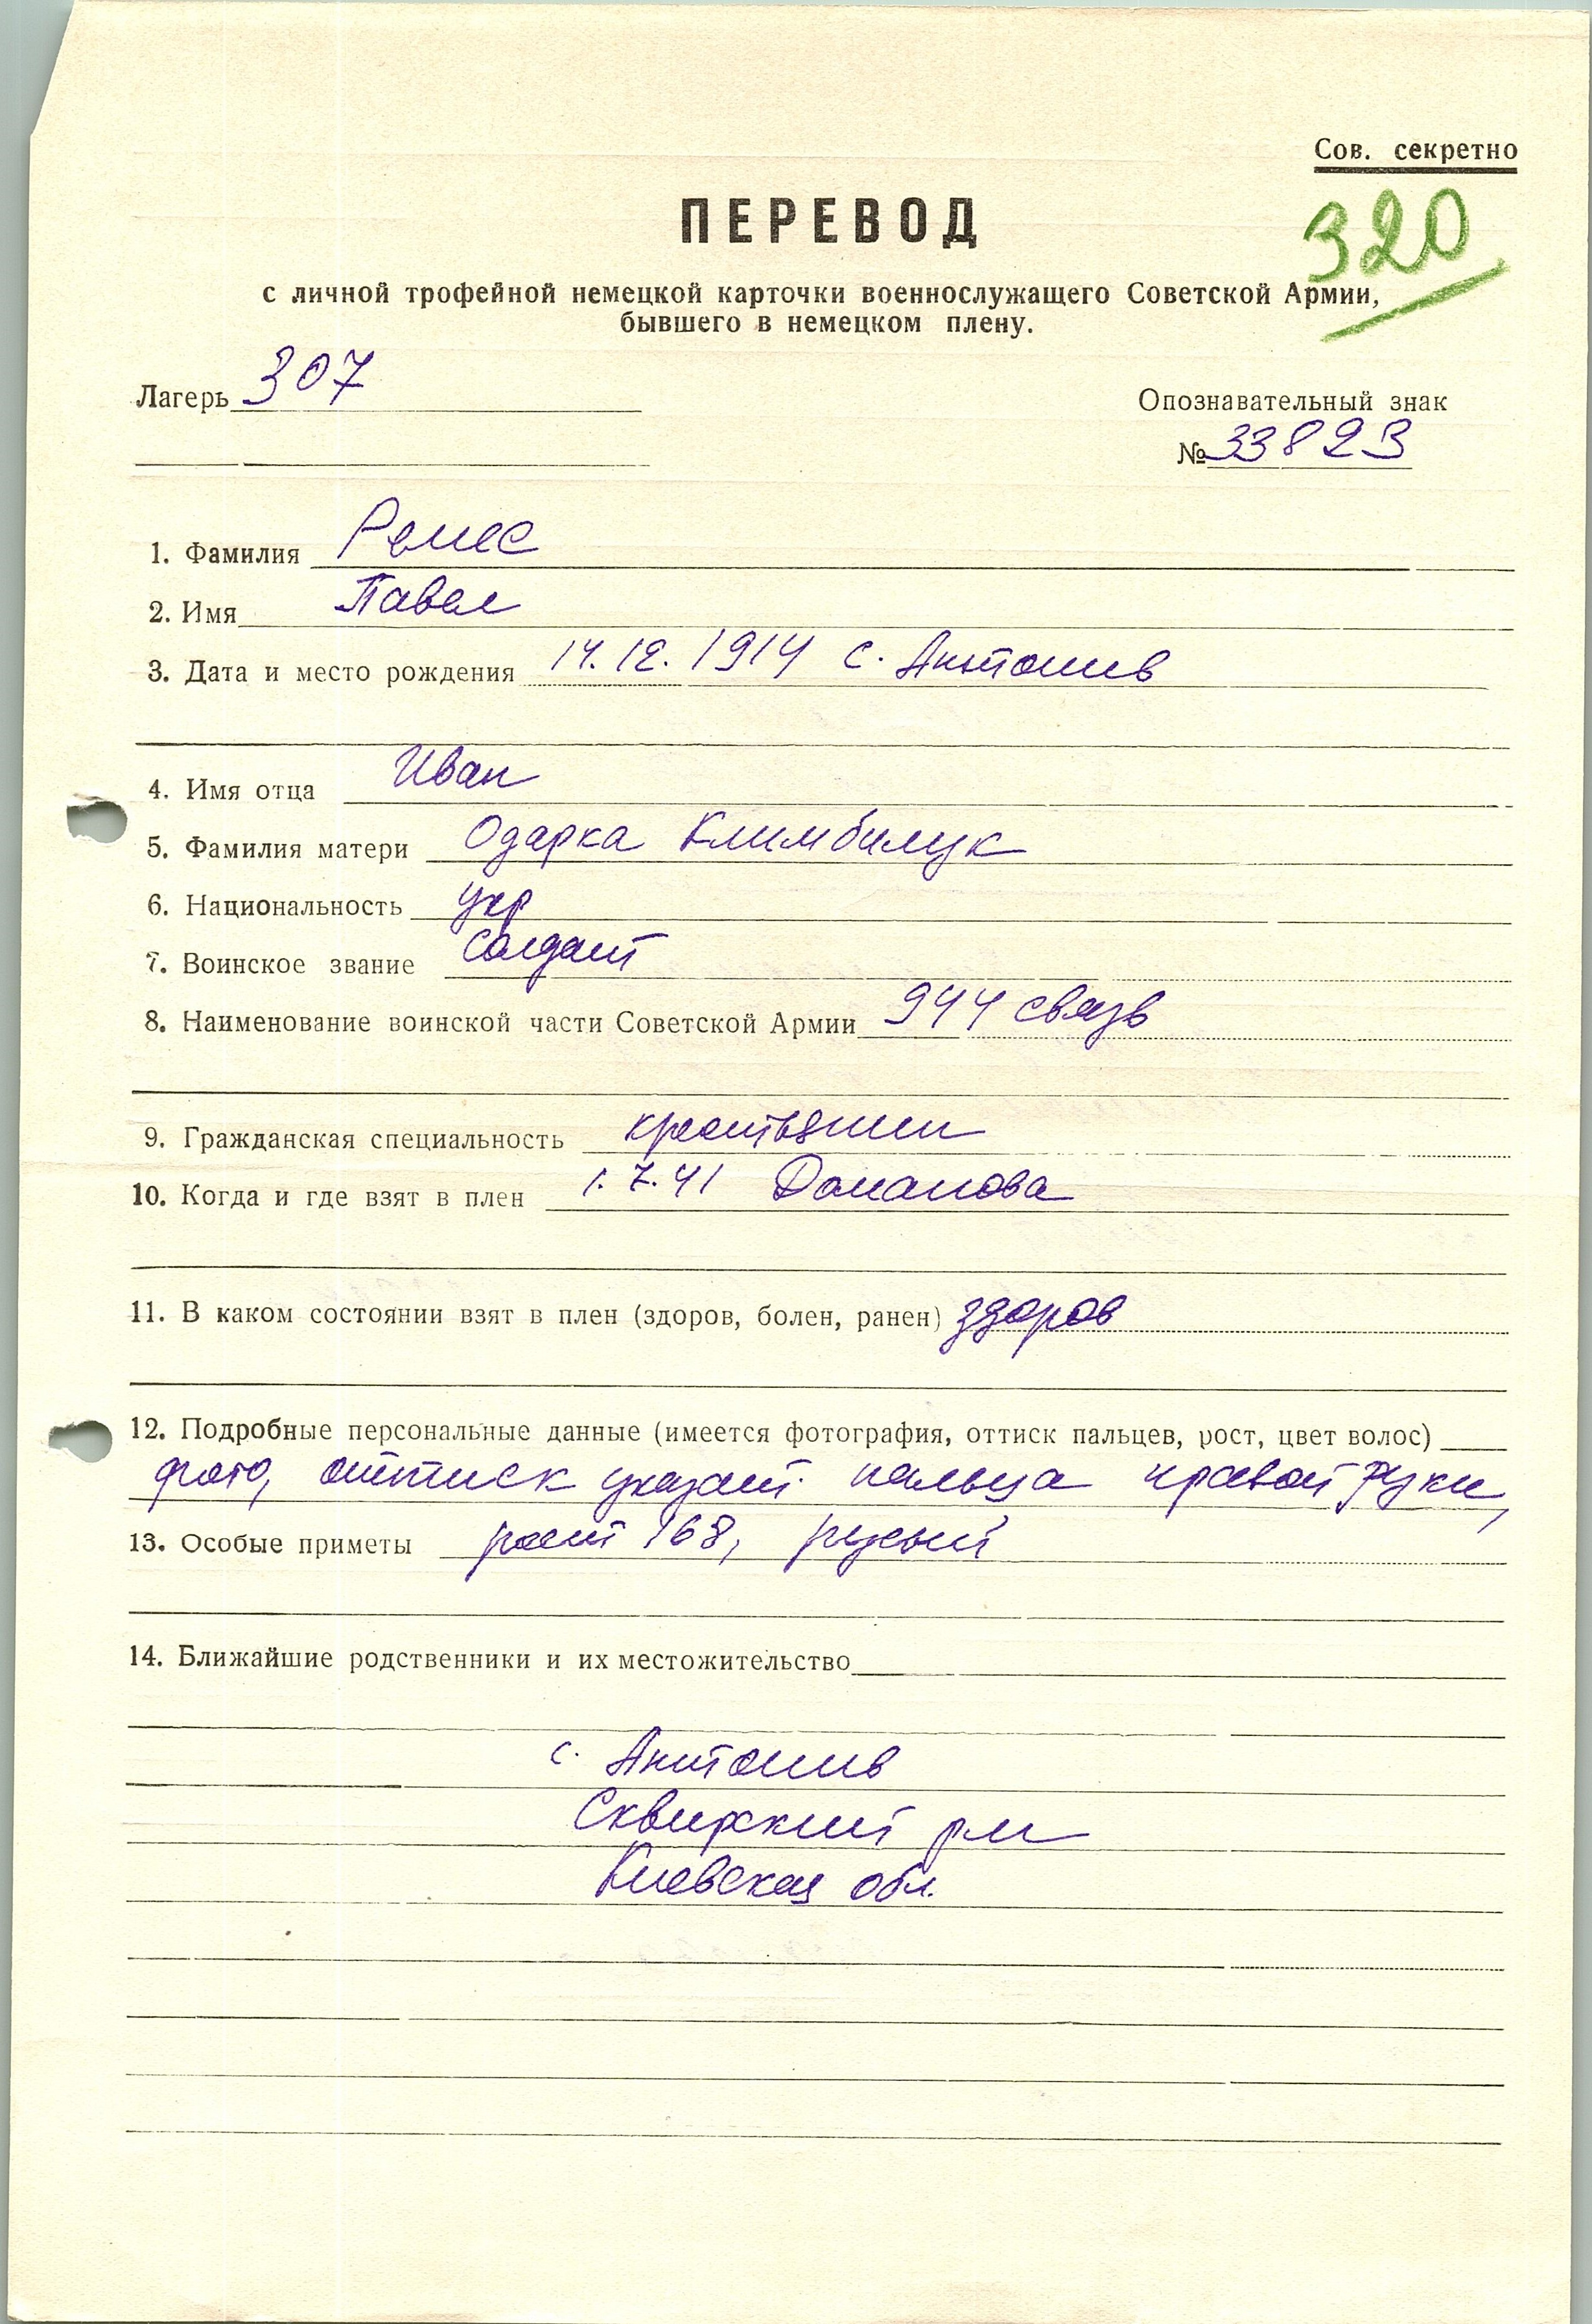 Сов. секретно
320
ПЕРЕВОД
с личной трофейной немецкой карточки военнослужащего Советской Армии,
бывшего в немецком плену.
Лагерь 307
Опознавательный знак
№ 33823
1. Фамилия Ремес
2. Имя Павел
3. Дата и место рождения 14.12.1914 с. Антонив
4. Имя отца Иван
5. Фамилия матери Одарка
6. Национальность укр
7. Воинское звание солдат
8. Наименование воинской части Советской Армии 944 связь
9. Гражданская специальность крестьянин
10. Когда и где взят в плен 1.7.41
11. В каком состоянии взят в плен (здоров, болен, ранен) здоров
12. Подробные персональные данные (имеется фотография, оттиск пальцев, рост, цвет волос)
фото, оттиск указат. пальца правой руки,
13. Особые приметы рост 168, русый
14. Ближайшие родственники и их местожительство
с. Антонив
Сквирский
Киевская обл.